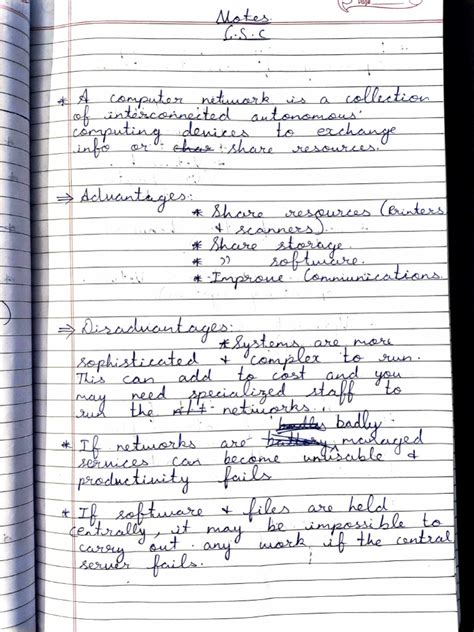 Notes
C.S.C
* A computer network is a collection
of interconnected autonomous
computing devices to exchange
info or share resources.
⇒ Advantages:
* Share resources (Printers
& scanners)
* Share storage.
* " software.
* Improve Communications
⇒ Disadvantages:
* Systems are more
sophisticated & complex to run.
This can add to cost and you
may need specialized staff to
run the networks.
badly
* If networks are managed
services can become unusable &
productivity fails
* If software & files are held
centrally, it may be impossible to
carry out any work if the central
server fails.